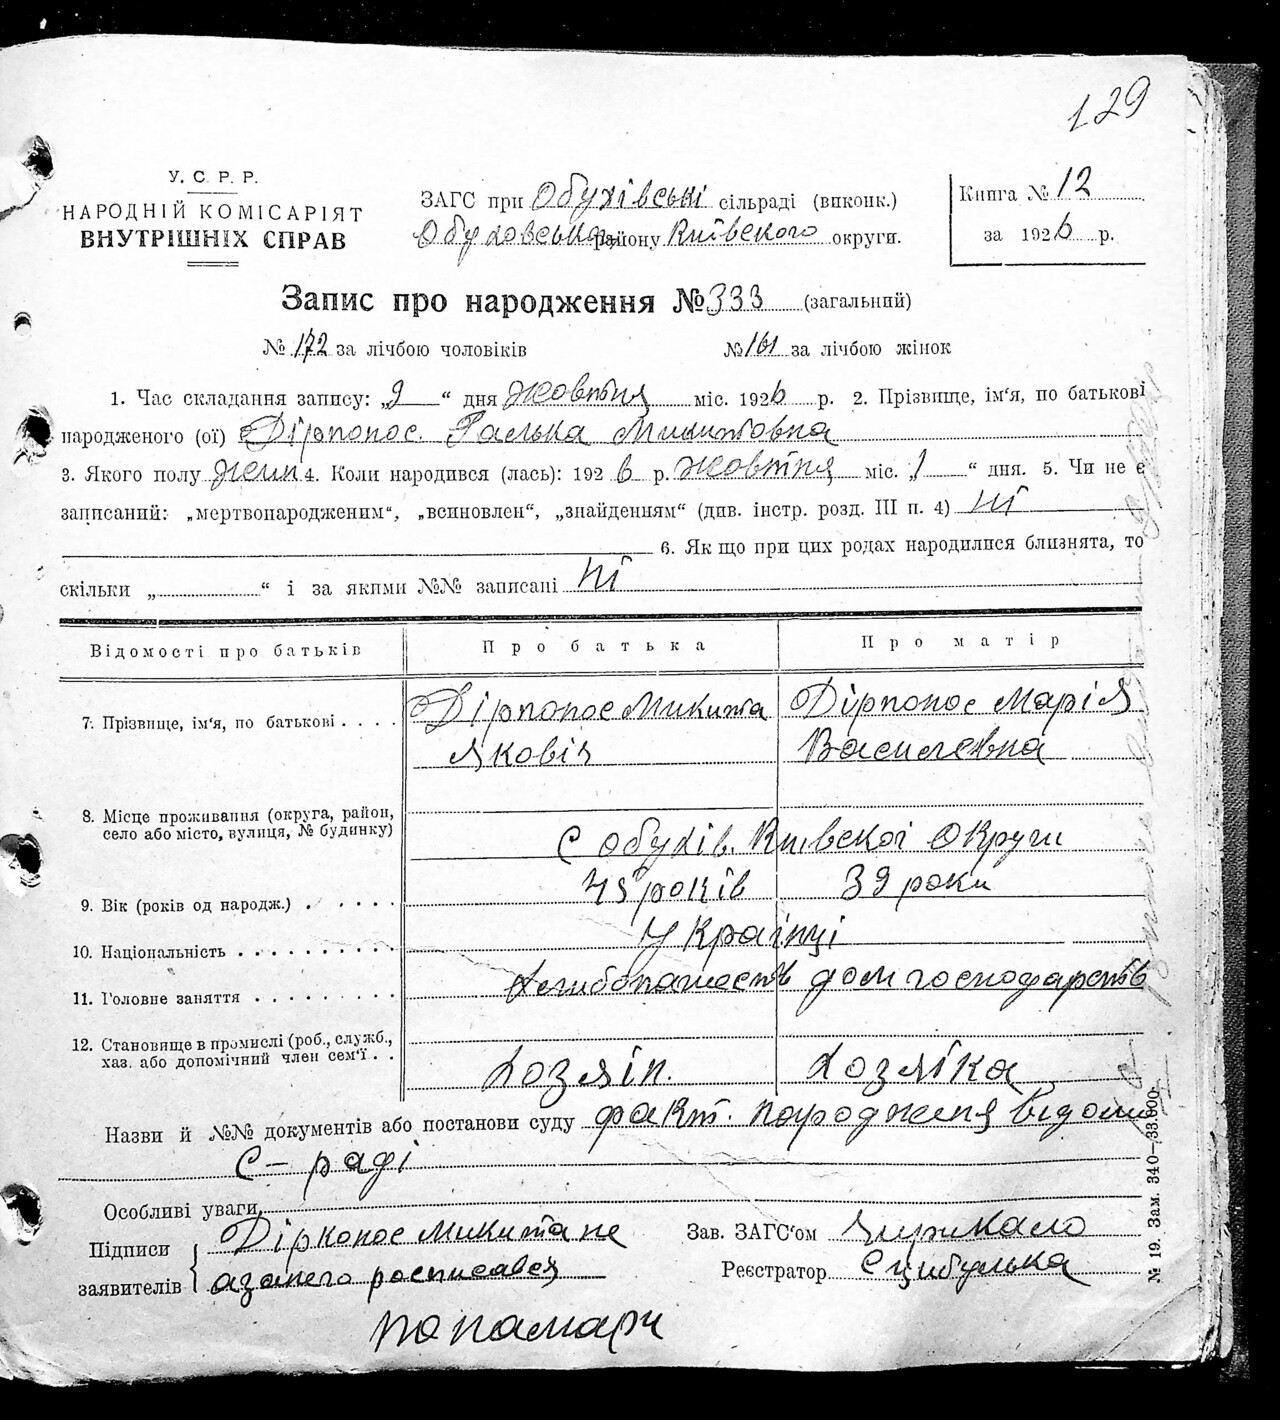 129
У. С. Р. Р.
НАРОДНІЙ КОМІСАРІЯТ
ВНУТРІШНІХ СПРАВ
ЗАГС при Обухівські сільраді (виконк.)
Обуховського району Київского округи.
Книга № 12
за 1926 р.
Запис про народження № 333 (загальний)
№ 172 за лічбою чоловіків № 161 за лічбою жінок
1. Час складання запису: „9“ дня жовтня міс. 1926 р. 2. Прізвище, ім‘я, по батькові
народженого (ої) Дірпопос. Галька Микитовна
3. Якого полу жин 4. Коли народився (лась): 1926 р. жовтня міс. 1 “ дня. 5. Чи не є
записаний: „мертвонародженим“, „всиновлен“, „знайденням“ (див. інстр. розд. III п. 4) ні
6. Як що при цих родах народилися близнята, то
скільки „ “ і за якими №№ записані ні
Відомості про батьків Про батька Про матір
7. Прізвище, ім‘я, по батькові . . . . Дірпопос Микита Дірпопос Марія
Яковіч Василевна
8. Місце проживання (округа, район,
село або місто, вулиця, № будинку) С Обухів. Київскої Округи
9. Вік (років од народж.) . . . . . 45 років 39 роки
10. Національність . . . . . . . . Українці
11. Головне заняття . . . . . . . . Хлибопашеств дом господарств
12. Становище в промислі (роб., служб.,
хаз. або допомічний член сем‘ї . . Хозяін. Хозяіка
Назви й №№ документів або постанови суду факт. народженя відоми
С – раді
Особливі уваги
Підписи
заявителів
Дірпопос Микита не
азанего росписався
Зав. ЗАГС‘ом
Реєстратор С Цибулька
Пономарь
№ 19. Зам. 340—33.000